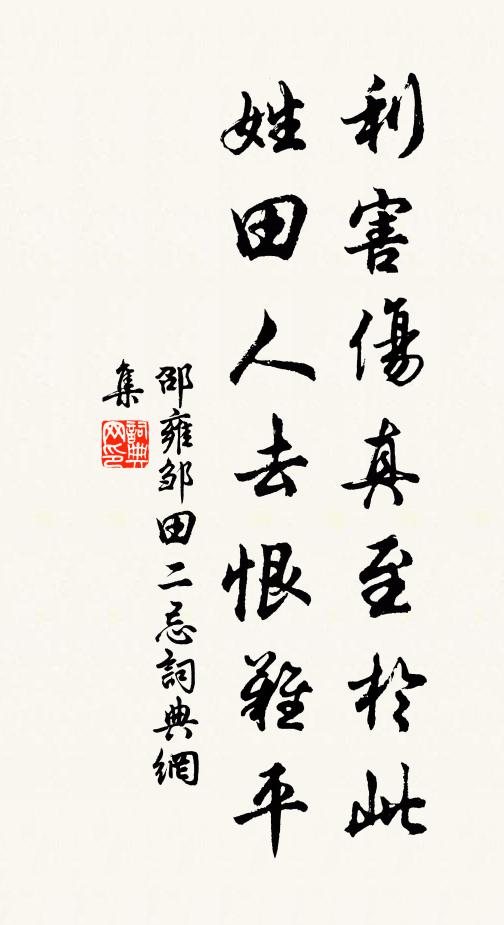 利害傷真至於此
姓田人去恨難平
邵雍邹田二忌詞典網
集
詞典
网印